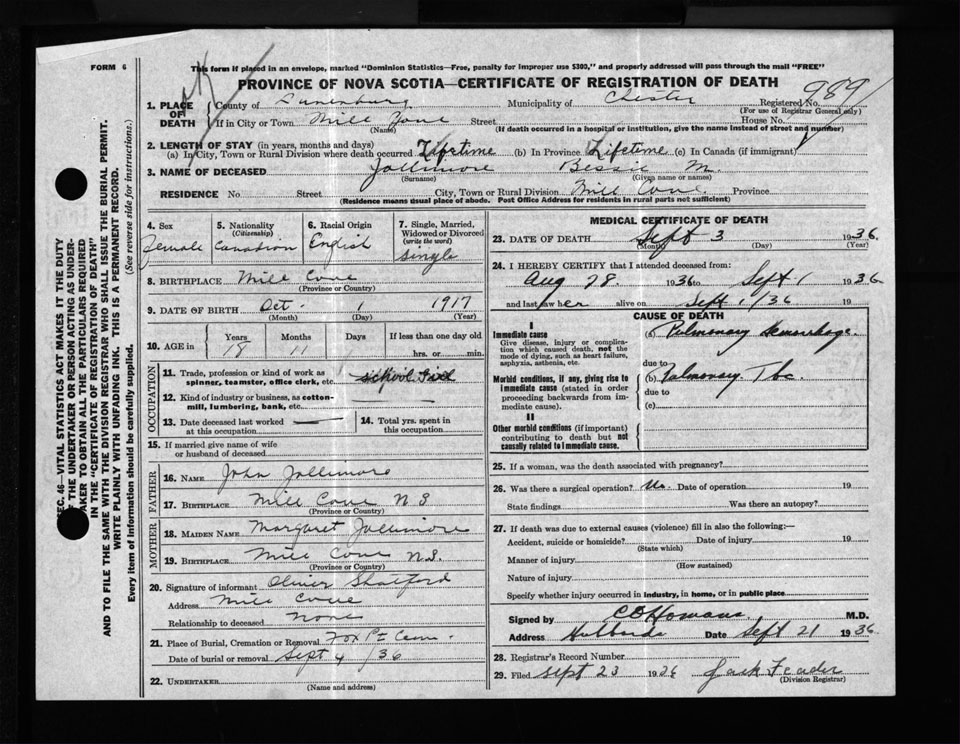 FORM 6
This form if placed in an envelope, marked "Dominion Statistics—Free, penalty for improper use $300," and properly addressed will pass through the mail "FREE"
PROVINCE OF NOVA SCOTIA—CERTIFICATE OF REGISTRATION OF DEATH
989
1. PLACE OF DEATH
County of Lunenburg Municipality of Chester Registered No.
(For use of Registrar General only)
If in City or Town Mill Cove Street House No.
(Name) (If death occurred in a hospital or institution, give the name instead of street and number)
2. LENGTH OF STAY (in years, months and days)
(a) In City, Town or Rural Division where death occurred Lifetime (b) In Province Lifetime (c) In Canada (if immigrant)
3. NAME OF DECEASED Jollimore Bessie M.
(Surname) (Given name or names)
RESIDENCE No Street City, Town or Rural Division Mill Cove Province
(Residence means usual place of abode. Post Office Address for residents in rural parts not sufficient)
4. Sex 5. Nationality (Citizenship) 6. Racial Origin 7. Single, Married, Widowed or Divorced (write the word)
Female Canadian English Single
8. BIRTHPLACE Mill Cove
(Province or Country)
9. DATE OF BIRTH Oct. 1917
(Month) (Day) (Year)
10. AGE in Years Months Days If less than one day old
18 11 hrs. or min.
OCCUPATION
11. Trade, profession or kind of work as spinner, teamster, office clerk, etc. school girl
12. Kind of industry or business, as cotton-mill, lumbering, bank, etc.
13. Date deceased last worked at this occupation 14. Total yrs. spent in this occupation
15. If married give name of wife or husband of deceased
FATHER
16. NAME John Jollimore
17. BIRTHPLACE Mill Cove N S
(Province or Country)
MOTHER
18. MAIDEN NAME Margaret Jollimore
19. BIRTHPLACE Mill Cove N.S.
(Province or Country)
20. Signature of informant Oliver Shatford
Address Mill Cove
Relationship to deceased None
21. Place of Burial, Cremation or Removal Fox Pt Cem.
Date of burial or removal Sept 4 /36
22. UNDERTAKER
(Name and address)
MEDICAL CERTIFICATE OF DEATH
23. DATE OF DEATH Sept 3 1936.
(Month) (Day) (Year)
24. I HEREBY CERTIFY that I attended deceased from:
Aug 28. 1936 to Sept 1 1936
and last saw her alive on Sept 1/36 19
CAUSE OF DEATH
I
Immediate cause
Give disease, injury or complication which caused death, not the mode of dying, such as heart failure, asphyxia, asthenia, etc.
(a) Pulmonary Hemorrhage.
due to
Morbid conditions, if any, giving rise to immediate cause (stated in order proceeding backwards from immediate cause).
(b) Pulmonary Tbc.
due to
(c)
II
Other morbid conditions (if important) contributing to death but not causally related to immediate cause.
25. If a woman, was the death associated with pregnancy?
26. Was there a surgical operation? No. Date of operation 19
State findings Was there an autopsy?
27. If death was due to external causes (violence) fill in also the following:—
Accident, suicide or homicide? Date of injury 19
(State which)
Manner of injury
(How sustained)
Nature of injury
Specify whether injury occurred in industry, in home, or in public place
Signed by M.D.
Address Hubbards Date Sept 21 1936.
28. Registrar's Record Number
29. Filed Sept 23 1936 Jack Feader
(Division Registrar)
SEC. 46—VITAL STATISTICS ACT MAKES IT THE DUTY
OF THE UNDERTAKER OR PERSON ACTING AS UNDER-
TAKER TO OBTAIN ALL THE PARTICULARS REQUIRED
IN THE "CERTIFICATE OF REGISTRATION OF DEATH"
AND TO FILE THE SAME WITH THE DIVISION REGISTRAR WHO SHALL ISSUE THE BURIAL PERMIT.
WRITE PLAINLY WITH UNFADING INK. THIS IS A PERMANENT RECORD.
Every item of information should be carefully supplied. (See reverse side for instructions.)